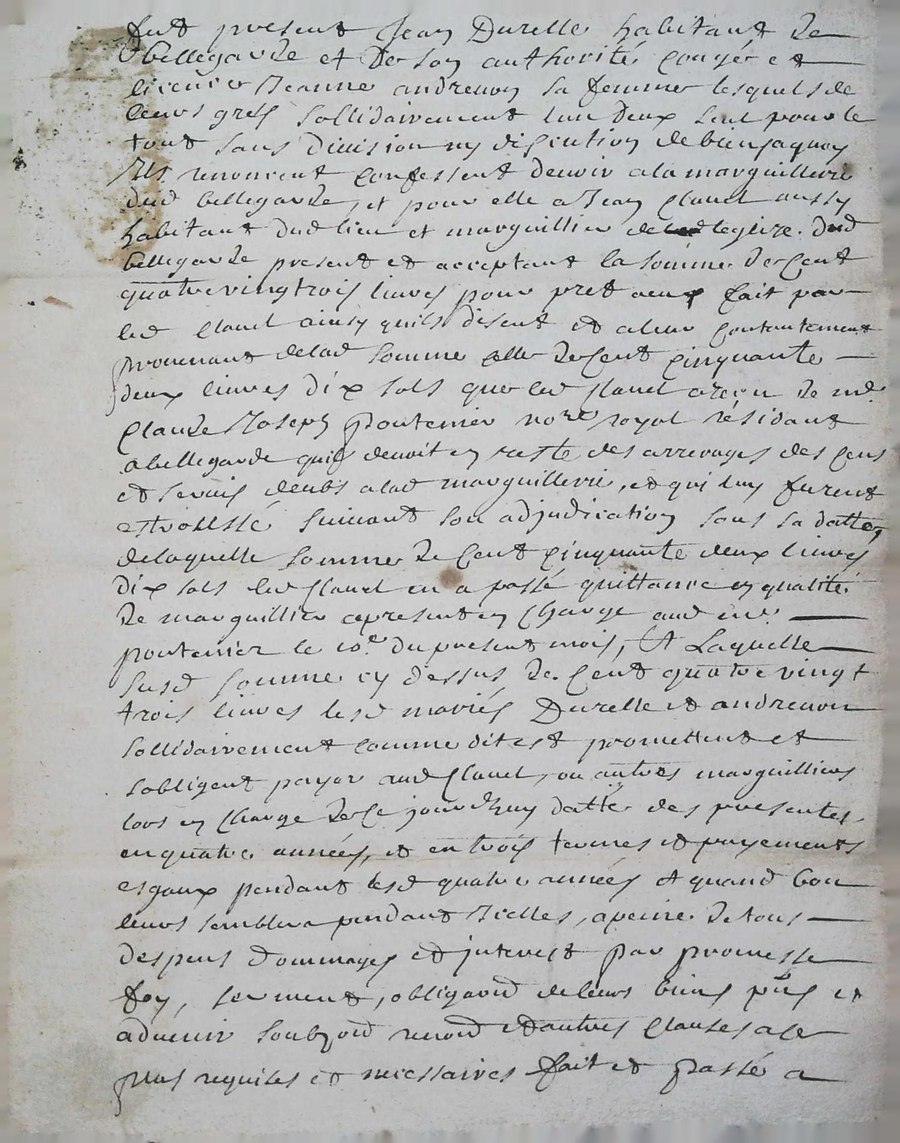 fut present Jean Durelle habitant de
bellegarde et de son authorité congér et
licencier Jeanne andrenon sa femme lesquels de
leurs gres sollidairement lun deux seul pour le
tout sans division ny discution de bien a quoy
Ils renoncent confessent devoir a la marguillerie
dud bellegarde, et pour elle a Jean Clauel aussy
habitant dud lieu et marguillier de leglize dud
bellegarde present et acceptant la somme de Cent
quatre vingt trois livres pour pret a eux fait par
led Clauel ainsy quils disent et a leur contantement
provenant de lad somme celle de Cent cinquante
deux livres dix sols que led Clauel a reçu de me
Claude Joseph pontenier nore royal résidant
a bellegarde quil devoit en reste des arrerages des cens
et servis deubs a lad marguillerie, et qui luy furent
suivant son adjudication sous sa datte,
de laquelle somme de Cent cinquante deux livres
dix sols led Clauel en a passé quittance en qualité
de marguillier a present en Charge aud me
pontenier le 10e du present mois, Et Laquelle
susd somme cy dessus de Cent quatre vingt
trois livres lesd mariés Durelle et andrenon
sollidairement comme dit est promettent et
sobligent payer aud Clauel, ou autres marguilliers
lors en Charge de Ce jourdhuy datte des presentes
en quatre années, et en trois termes et payements
esgaux pendant lesd quatre années Et quand bon
leurs semblera pendant Icelles, a peine de tous
despens dommages et interest par promesse
foy, serment, obligaond de leurs biens pnts et
advenir soubzond renond et autres clauses a ce
plus requises et necessaires fait et passé a